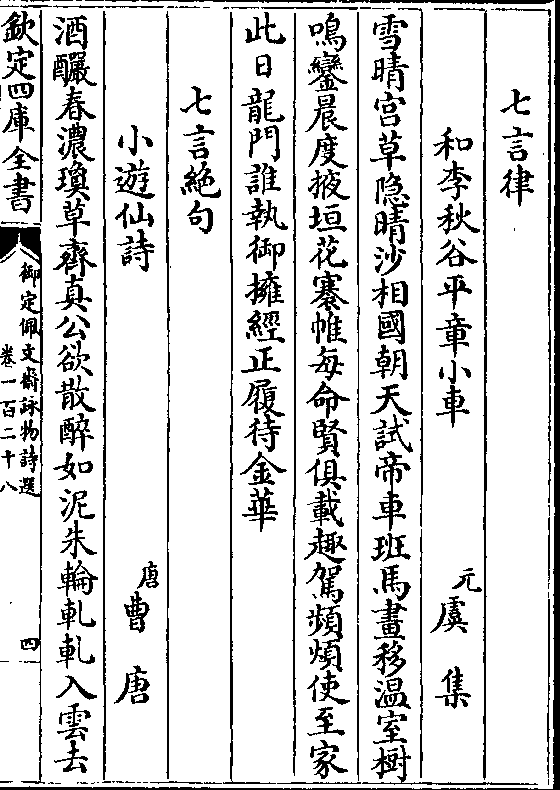 七言律
和李秋谷平章小車
元虞集
雪晴宮草隐晴沙相國朝天試帝車班馬晝移温室樹
鳴鑾晨度掖垣花褰帷每命賢俱載趣駕頻煩使至家
此日龍門誰執御擁經正履待金華
七言絶句
小遊仙詩
唐曹唐
酒釅春濃瓊草齊真公欲散醉如泥朱輪軋軋入雲去
欽定四庫全書
御定佩文齋詠物詩選
卷一百二十八
四